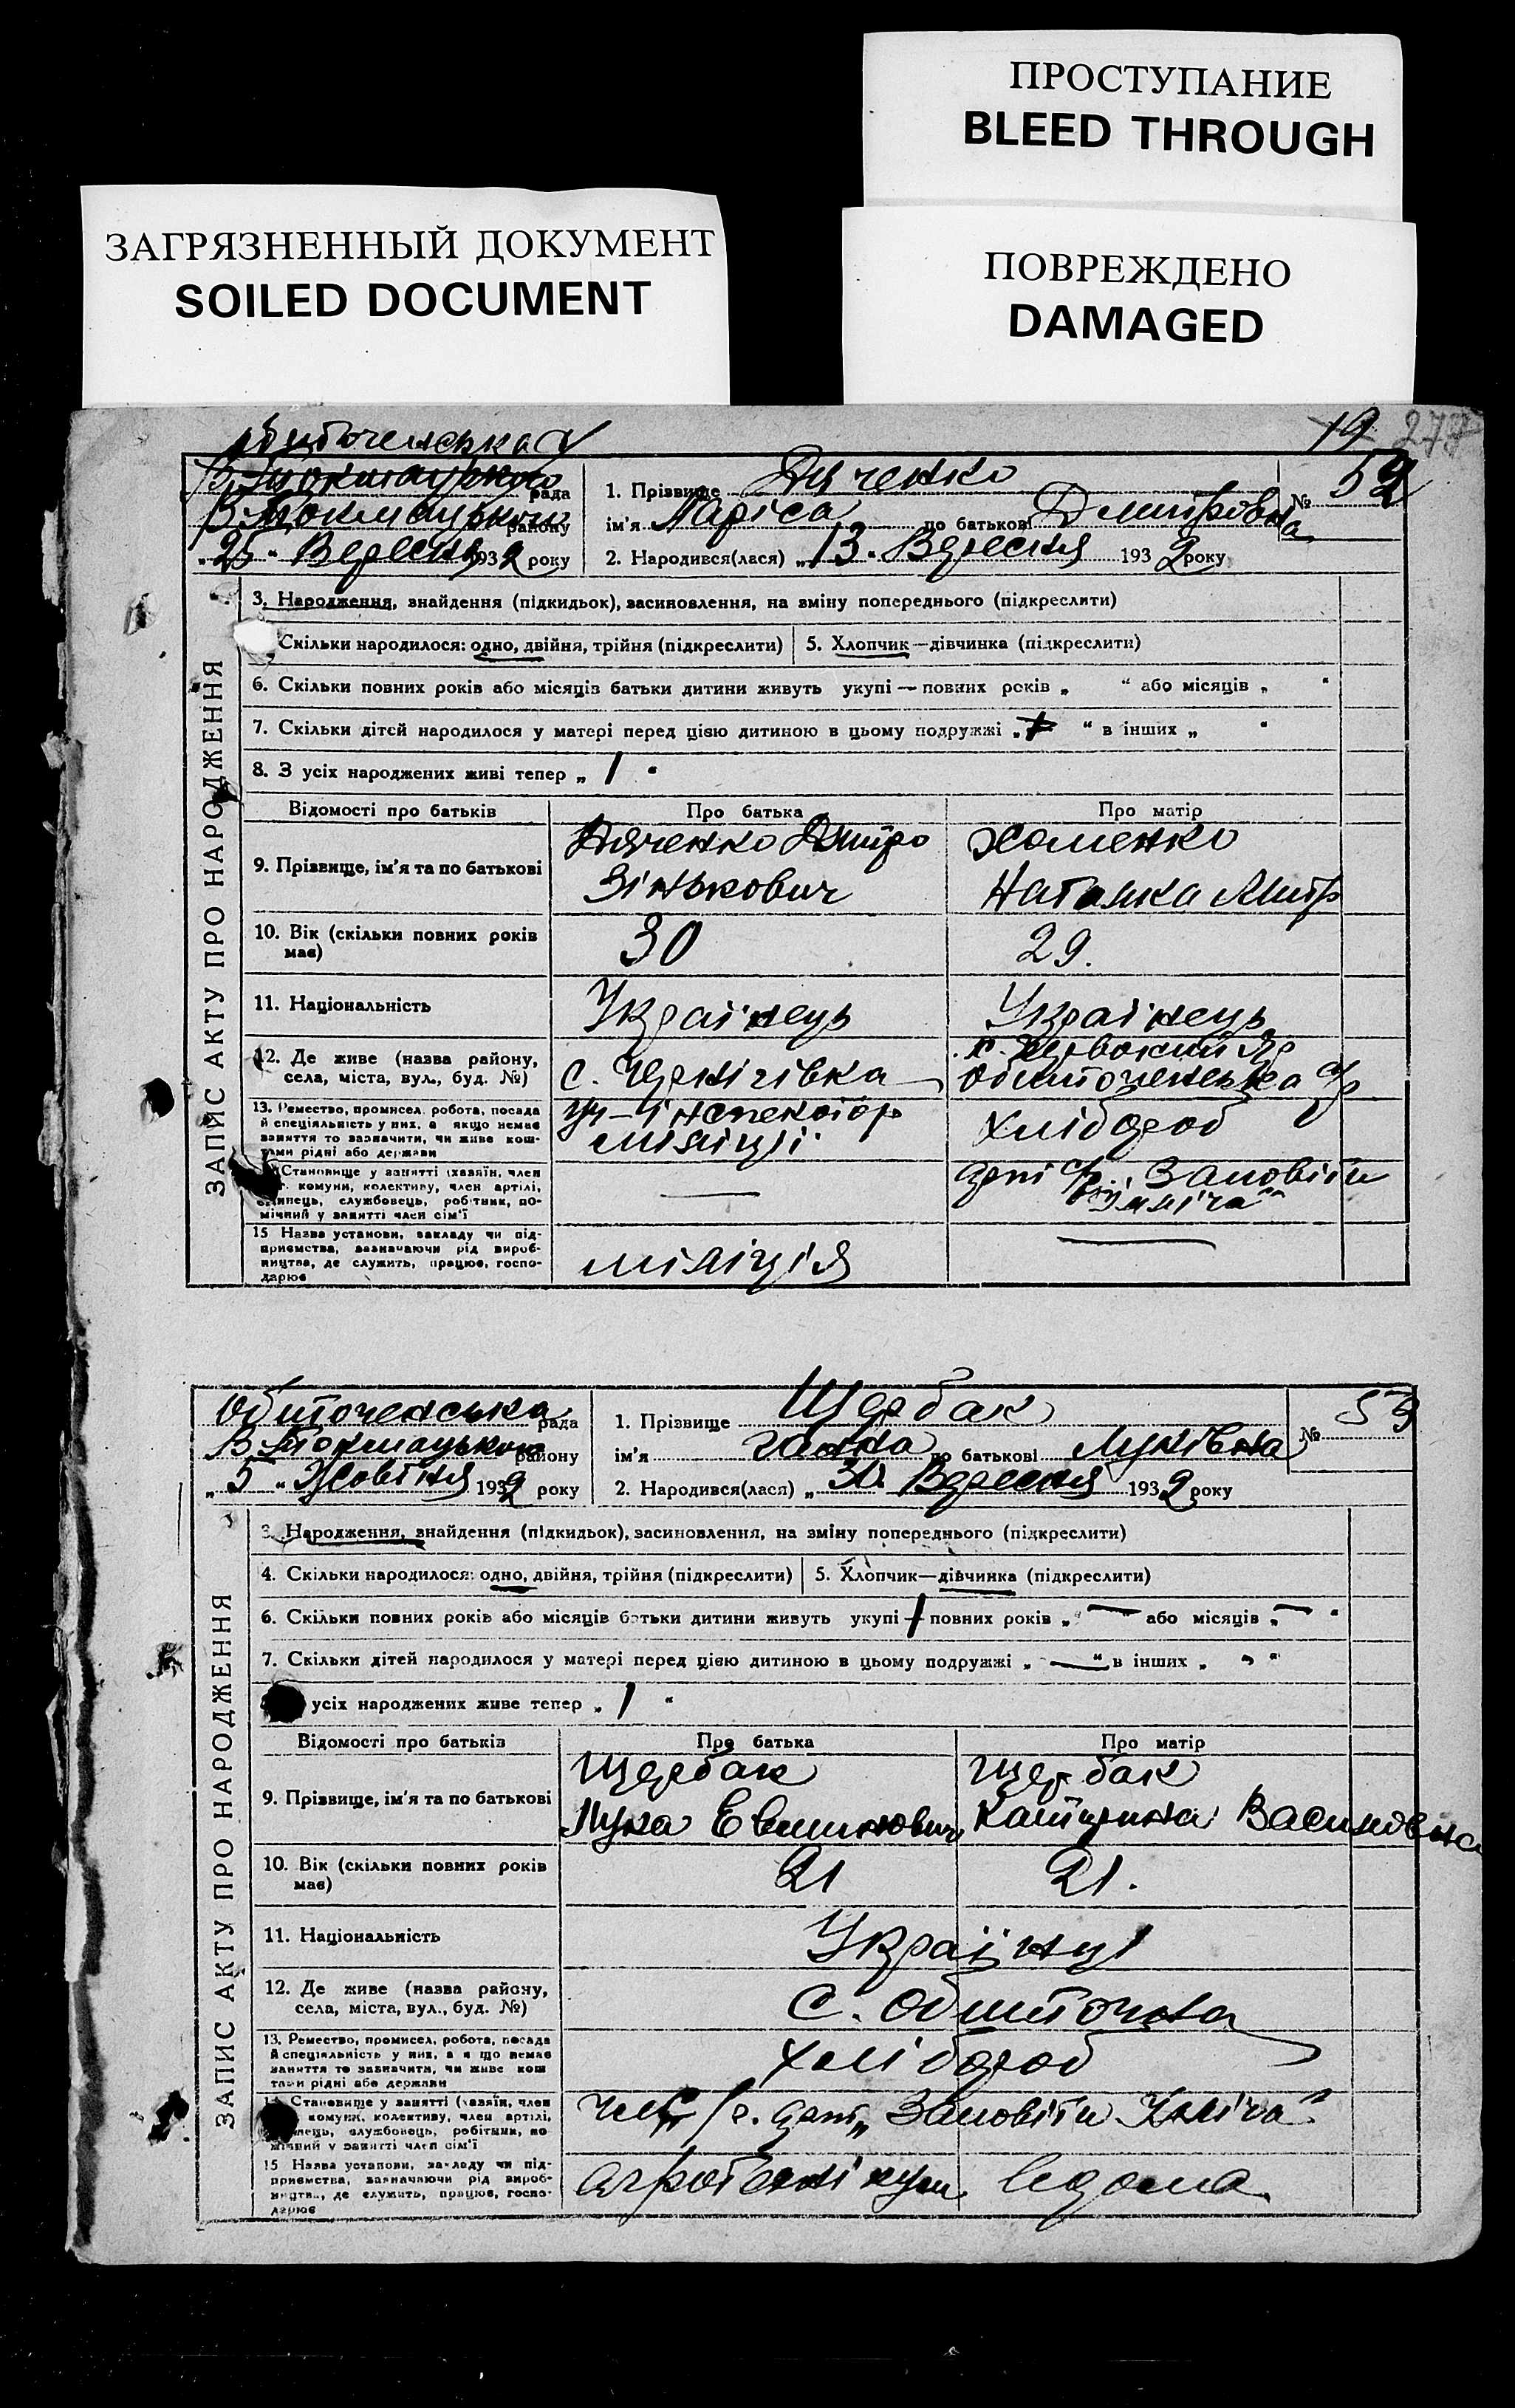 ПРОСТУПАНИЕ
BLEED THROUGH
ЗАГРЯЗНЕННЫЙ ДОКУМЕНТ
SOILED DOCUMENT
ПОВРЕЖДЕНО
DAMAGED
19 277
рада
В-Токмацького району
"25" Вересня 1932 року
1. Прізвище Дяченко
№ 52
ім'я Лариса по батькові Дмитровна
2. Народився(лася) "13" Вересня 1932 року
ЗАПИС АКТУ ПРО НАРОДЖЕННЯ
3. Народження, знайдення (підкидьок), засиновлення, на зміну попереднього (підкреслити)
Скільки народилося: одно, двійня, трійня (підкреслити) 5. Хлопчик—дівчинка (підкреслити)
6. Скільки повних років або місяців батьки дитини живуть укупі — повних років „ “ або місяців „ “
7. Скільки дітей народилося у матері перед цією дитиною в цьому подружжі „ “ в інших „ “
8. З усіх народжених живі тепер „ 1 “
Відомості про батьків Про батька Про матір
9. Прізвище, ім'я та по батькові
Дяченко Дмитро
Зінькович
Хоменко
Наталка Дмитр
10. Вік (скільки повних років має) 30 29.
11. Національність Українець Українець
12. Де живе (назва району, села, міста, вул., буд. №)
с. Чернігівка
13. Ремество, промисел, робота, посада й спеціяльність у них, а якщо немає заняття то зазначити, чи живе коштами рідні або держави
інспектор
міліції
Хлібороб
Становище у занятті (хазяїн, член комуни, колективу, член артілі, службовець, робітник, помічний у занятті член сім'ї
—
Заповіти
Ілліча"
15 Назва установи, закладу чи підприємства, зазначаючи рід виробництва, де служить, працює, господарює
міліція —
Обиточенська рада
В-Токмацького району
"5" Жовтня 1932 року
1. Прізвище Щербак
№ 53
ім'я Ганна по батькові Луківна
2. Народився(лася) "30" Вересня 1932 року
ЗАПИС АКТУ ПРО НАРОДЖЕННЯ
3. Народження, знайдення (підкидьок), засиновлення, на зміну попереднього (підкреслити)
4. Скільки народилося: одно, двійня, трійня (підкреслити) 5. Хлопчик—дівчинка (підкреслити)
6. Скільки повних років або місяців батьки дитини живуть укупі — 1 повних років „ — “ або місяців „ — “
7. Скільки дітей народилося у матері перед цією дитиною в цьому подружжі „ — “ в інших „ “
усіх народжених живе тепер „ 1 “
Відомості про батьків Про батька Про матір
9. Прізвище, ім'я та по батькові
Щербак
Лука Евтимович
Щербак
Катерина Василовна
10. Вік (скільки повних років має) 21 21.
11. Національність Українці
12. Де живе (назва району, села, міста, вул., буд. №) с. Обиточна
13. Ремество, промисел, робота, посада й спеціяльність у них, а якщо немає заняття то зазначити, чи живе коштами рідні або держави
Хлібороб
Становище у занятті (хазяїн, член комуни, колективу, член артілі, службовець, робітник, помічний у занятті член сім'ї
"Заповіти Ілліча"
15 Назва установи, закладу чи підприємства, зазначаючи рід виробництва, де служить, працює, господарює